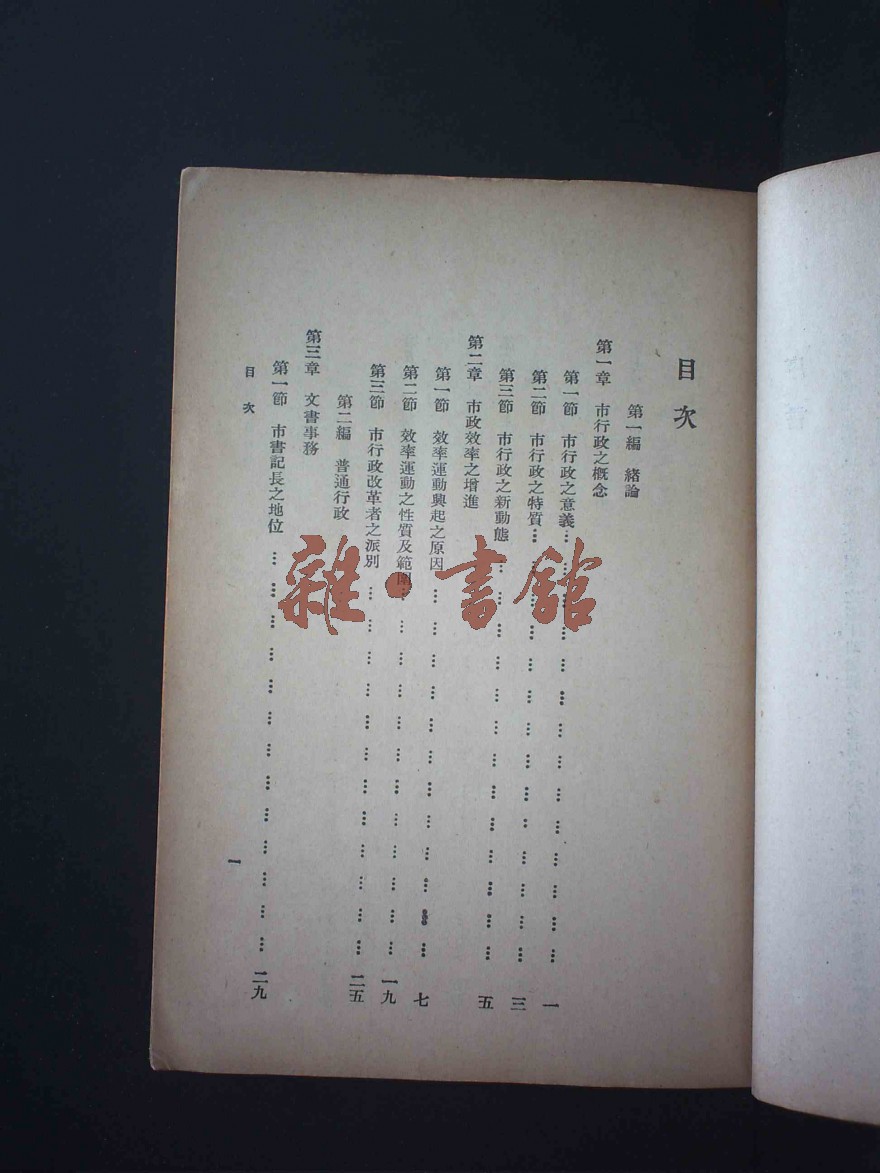 目次
第一編 緒論
第一章 市行政之概念
第一節 市行政之意義…………………………一
第二節 市行政之特質…………………………三
第三節 市行政之新動態…………………………五
第二章 市政效率之增進
第一節 效率運動興起之原因…………………………七
第二節 效率運動之性質及範圍…………………………一九
第三節 市行政改革者之派別…………………………二五
第二編 普通行政
第三章 文書事務
第一節 市書記長之地位…………………………二九
目次
一
雜·書館